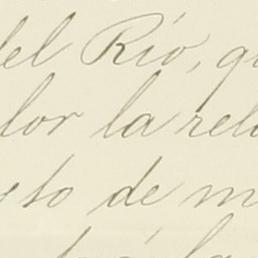 del Río, q
lor la rela
sto de m
la